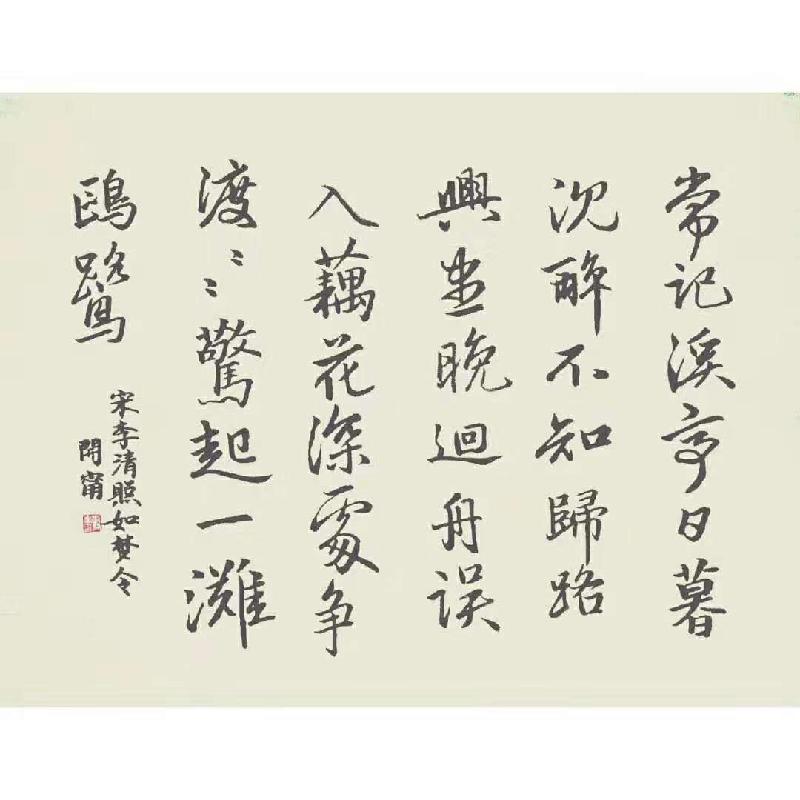 常记溪亭日暮
沉醉不知歸路
興盡晚迴舟误
入藕花深處争
渡〻〻驚起一灘
鷗鷺
宋李清照如梦令
開甯